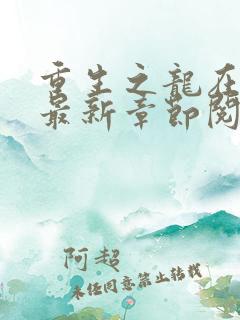 重生之龍在
最新章節閱
阿超
未任同意禁止转载